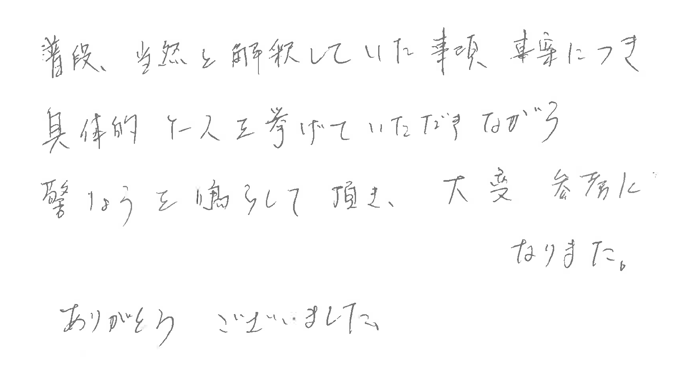 普段、当然と解釈していた事項 事案につき
具体的ケースを挙げていただきながら
警しょうを鳴らして頂き、大変 参考に
なりました。
ありがとう ございました。